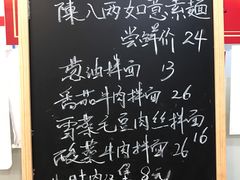 陳八两如意素麵
尝鲜价 24
葱油拌面 13
番茄牛肉拌面 26
雪菜毛豆肉丝拌面 16
酸菜牛肉拌面 26